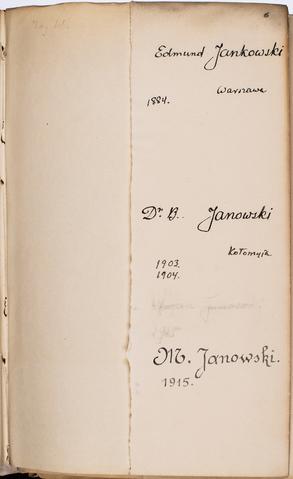 6
Edmund Jankowski
Warszawa
1884.
Dr. B. Janowski
Kołomyja
1903.
1904.
M. Janowski.
1915.